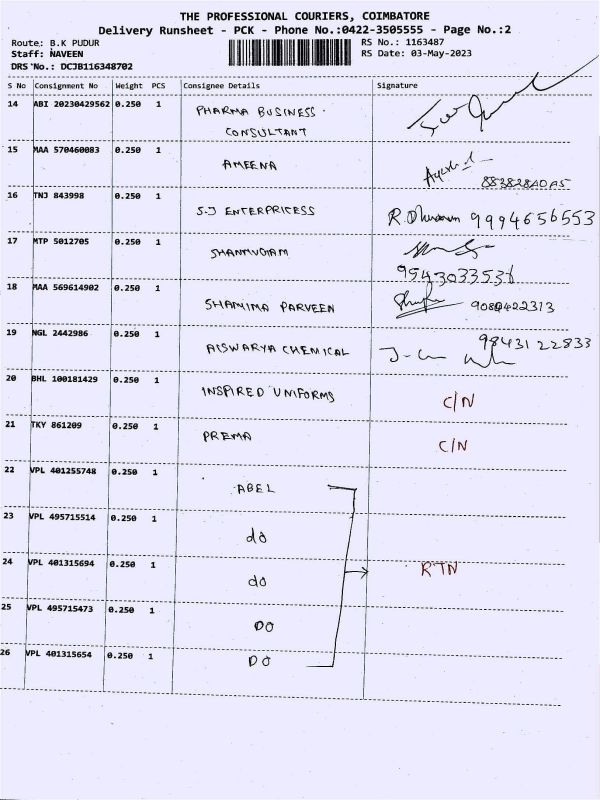 THE PROFESSIONAL COURIERS, COIMBATORE
Delivery Runsheet - PCK - Phone No.:0422-3505555 - Page No.:2
Route: B.K PUDUR RS No.: 1163487
Staff: NAVEEN RS Date: 03-May-2023
DRS No.: DCJB116348702
S No Consignment No Weight PCS Consignee Details Signature
14 ABI 20230429562 0.250 1 PHARMA BUSINESS
CONSULTANT
15 MAA 570460083 0.250 1 AMEENA
16 TNJ 843998 0.250 1 S.J ENTERPRICESS 9994656553
17 MTP 5012705 0.250 1 SHANMUGAM
18 MAA 569614902 0.250 1 SHAMIMA PARVEEN
19 NGL 2442986 0.250 1 AISWARYA CHEMICAL 9843122833
20 BHL 100181429 0.250 1 INSPIRED UNIFORMS C/N
21 TKY 861209 0.250 1 PREMA C/N
22 VPL 401255748 0.250 1 ABEL
23 VPL 495715514 0.250 1 do
24 VPL 401315694 0.250 1 do RTN
25 VPL 495715473 0.250 1 DO
26 VPL 401315654 0.250 1 DO